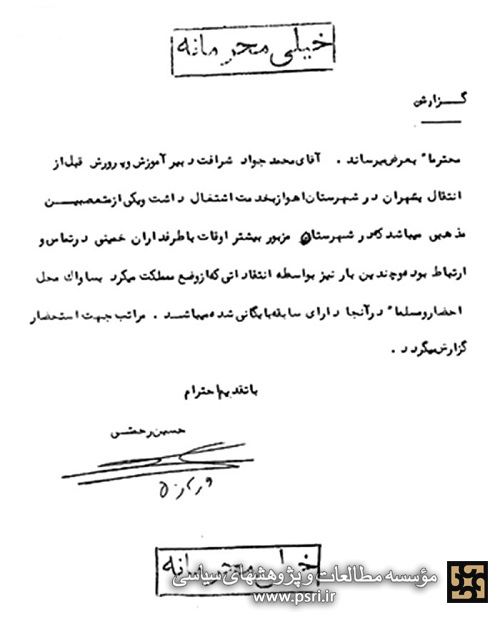 خیلی محرمانه
گزارش
محترماً بعرض میرساند . آقای محمد جواد شرافت دبیر آموزش و پرورش قبل از
انتقال بتهران در شهرستان اهواز بخدمت اشتغال داشت و یکی از متعصبین
مذهبی میباشد که در شهرستان مزبور بیشتر اوقات با طرفداران خمینی در تماس و
ارتباط بوده و چندین بار نیز بواسطه انتقاداتی که از وضع مملکت میکرد بساواک محل
احضار و مسلماً در آنجا دارای سابقه بایگانی شده میباشد . مراتب جهت استحضار
گزارش میگردد .
با تقدیم احترام
حسین رحمتی
خیلی محرمانه
مؤسسه مطالعات و پژوهشهای سیاسی
www.psri.ir